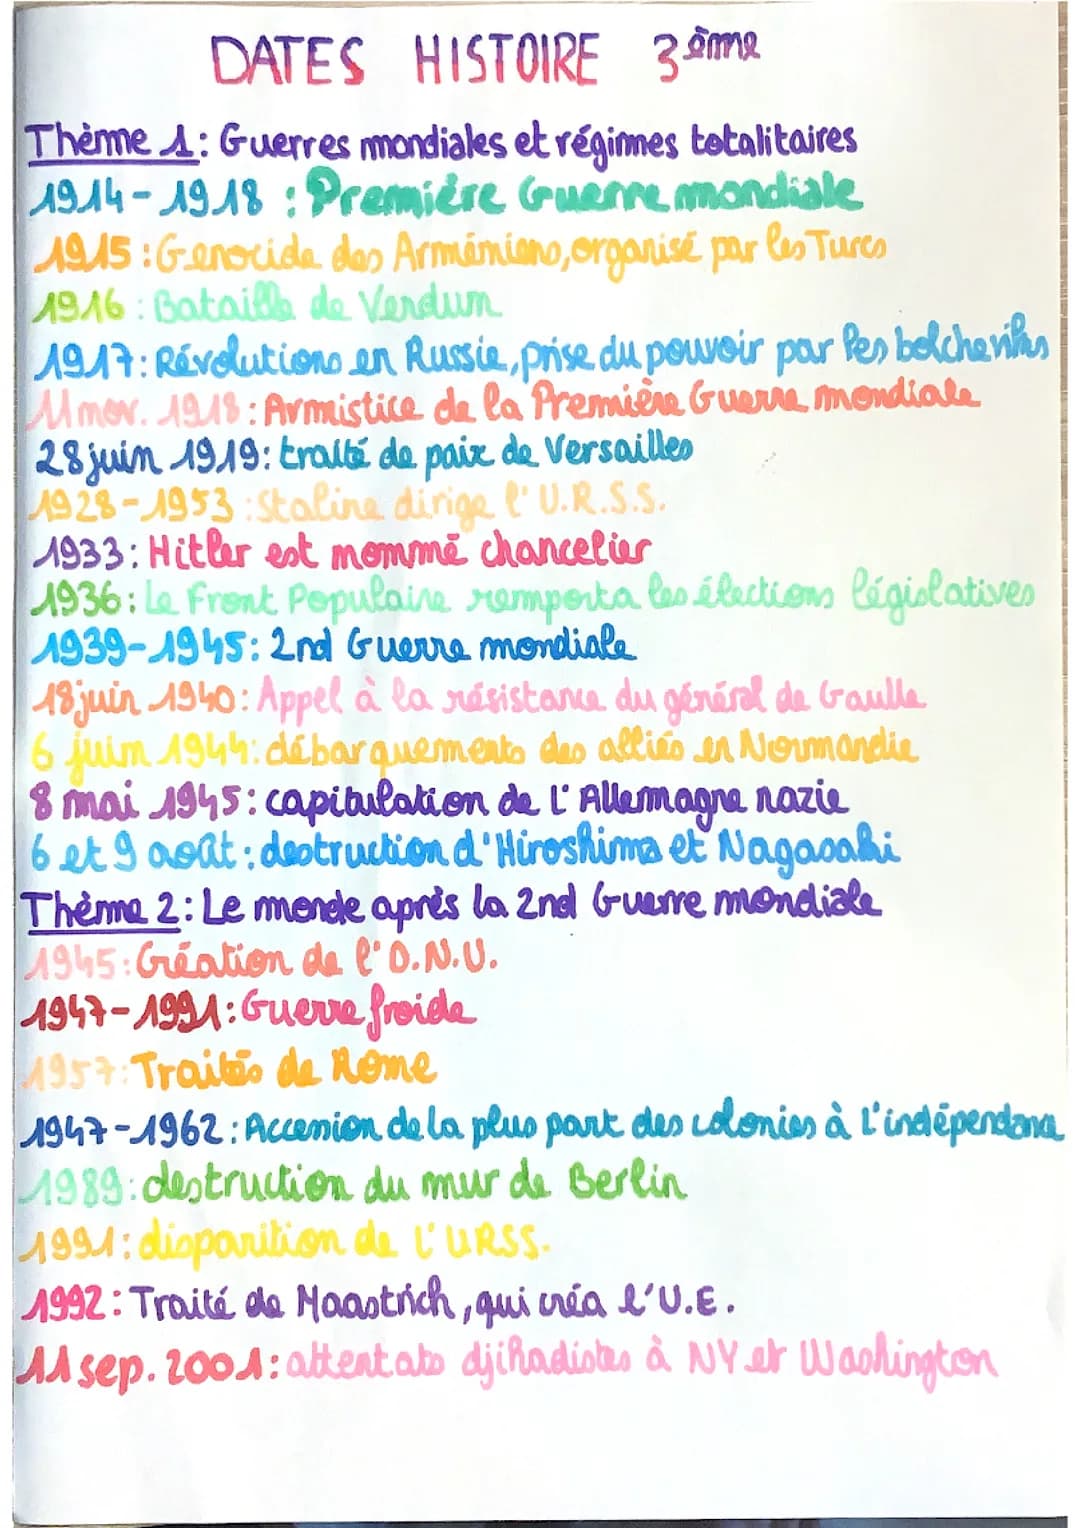 DATES HISTOIRE 3ème
Thème 1: Guerres mondiales et régimes totalitaires
1914-1918 : Première Guerre mondiale
1915 : Genocide des Arméniens, organisé par les Turcs
1916 : Bataille de Verdun
1917: Révolutions en Russie, prise du pouvoir par les bolcheviks
11 nov. 1918 : Armistice de la Première Guerre mondiale
28 juin 1919: traité de paix de Versailles
1928-1953 : Staline dirige l'U.R.S.S.
1933: Hitler est nommé chancelier
1936: Le Front Populaire remporta les élections législatives
1939-1945: 2nd Guerre mondiale
18 juin 1940: Appel à la résistance du général de Gaulle
6 juin 1944: débarquements des alliés en Normandie
8 mai 1945: capitulation de l'Allemagne nazie
6 et 9 août : destruction d'Hiroshima et Nagasaki
Thème 2: Le monde après la 2nd Guerre mondiale
1945: Création de l'O.N.U.
1947-1991: Guerre froide
1957: Traités de Rome
1947-1962: Accension de la plus part des colonies à l'indépendance
1989: destruction du mur de Berlin
1991: disparition de l'URSS.
1992: Traité de Maastrich, qui créa l'U.E.
11 sep. 2001: attentats djihadistes à NY et Washington